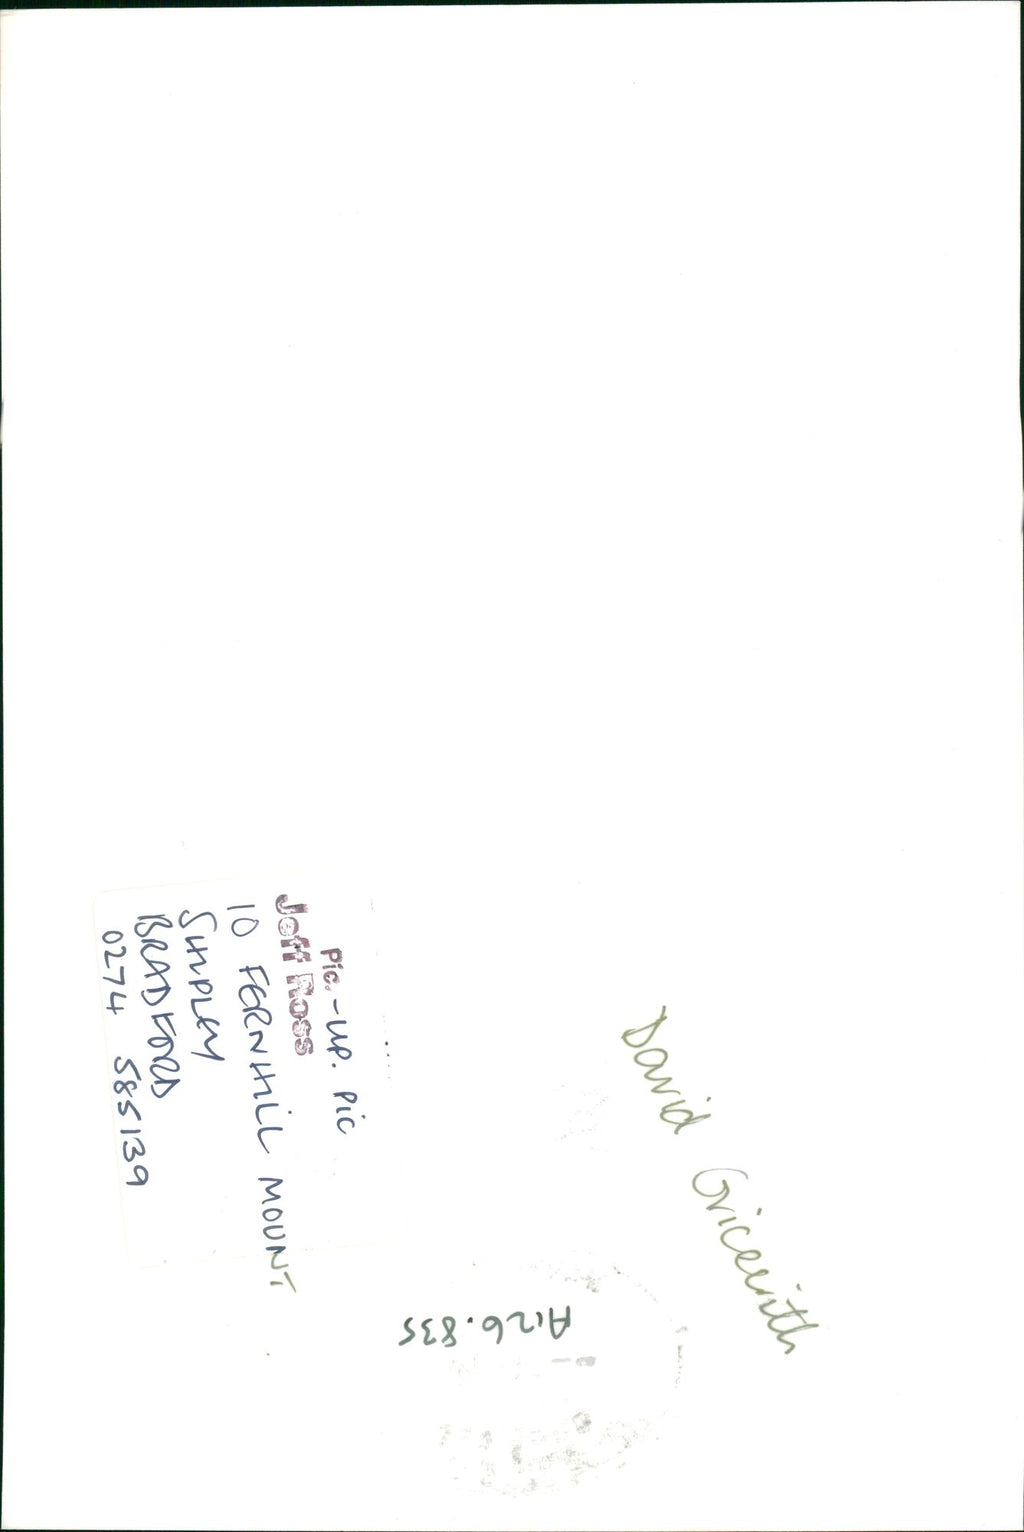 Pic.-UP. Pic
Jeff Ross
10 FERNHILL MOUNT
SHIPLEY
BRADFORD
0274 585139
David
A126.835